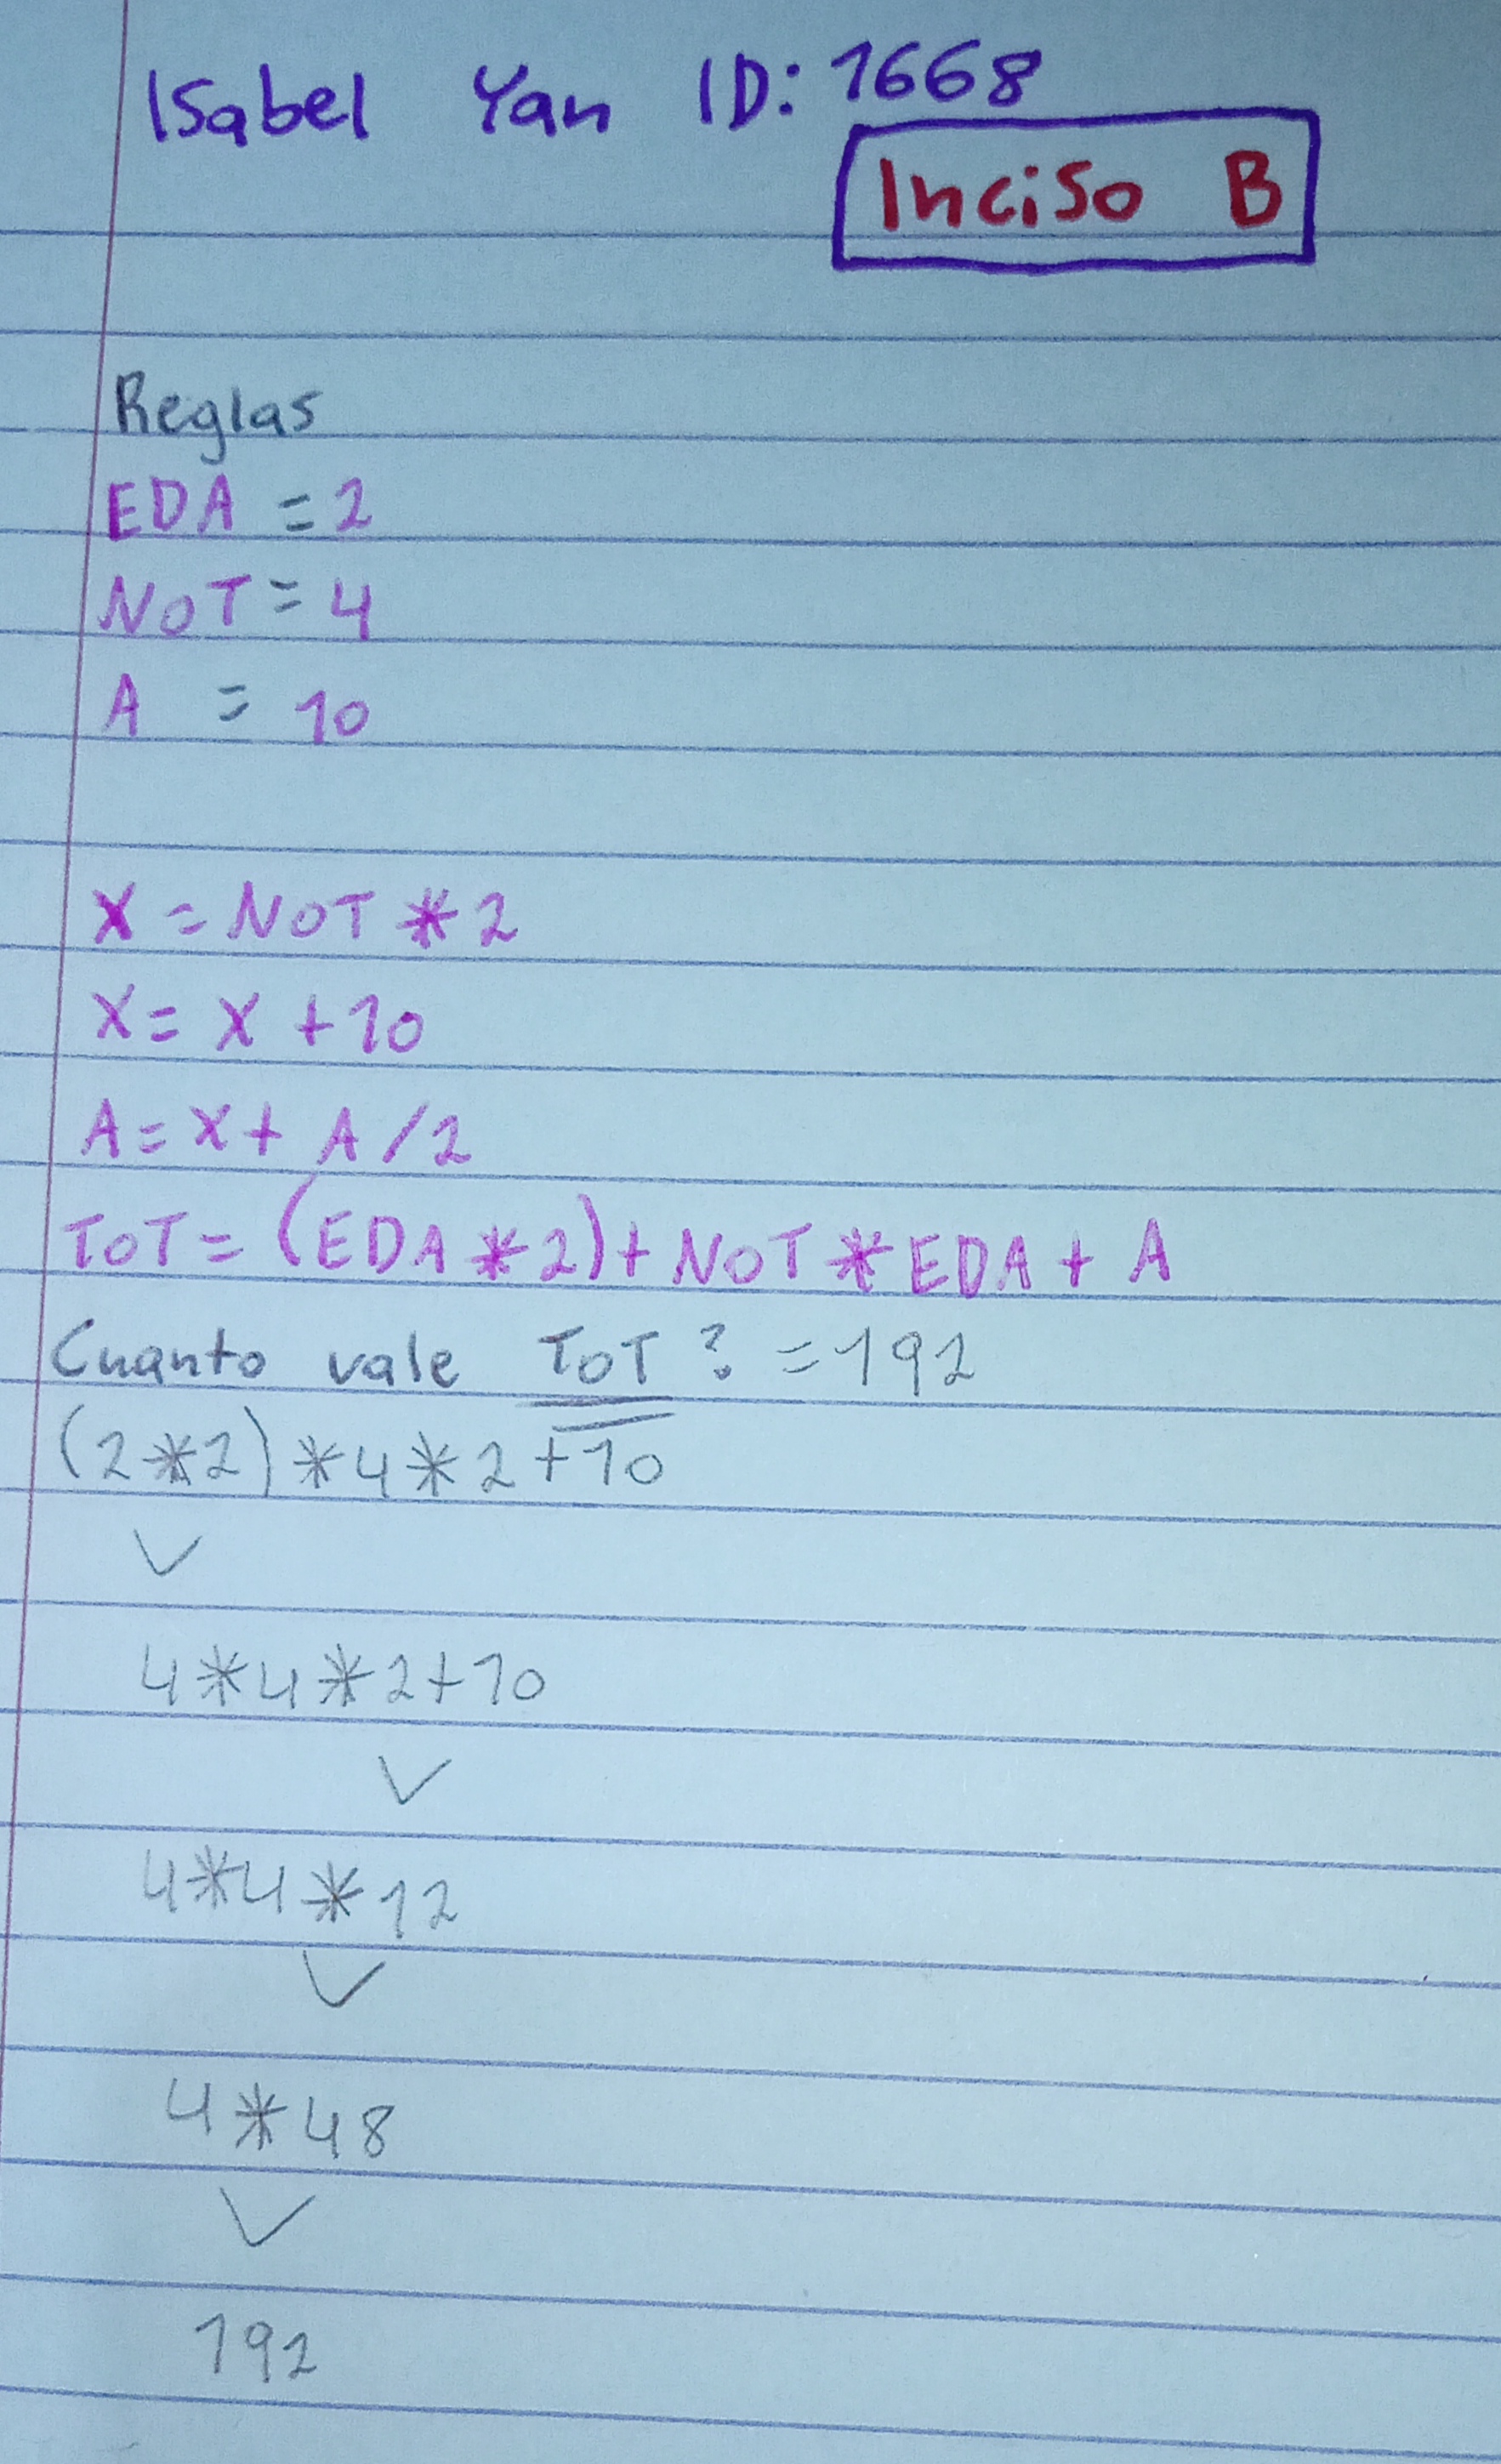 Isabel Yan ID: 1668
Inciso B
Reglas
EDA = 2
NOT = 4
A = 10
X = NOT * 2
X = X + 10
A = X + A / 2
TOT = (EDA * 2) + NOT * EDA + A
Cuanto vale TOT? = 192
(2 * 2) * 4 * 2 + 10
4 * 4 * 2 + 10
4 * 4 * 12
4 * 48
192